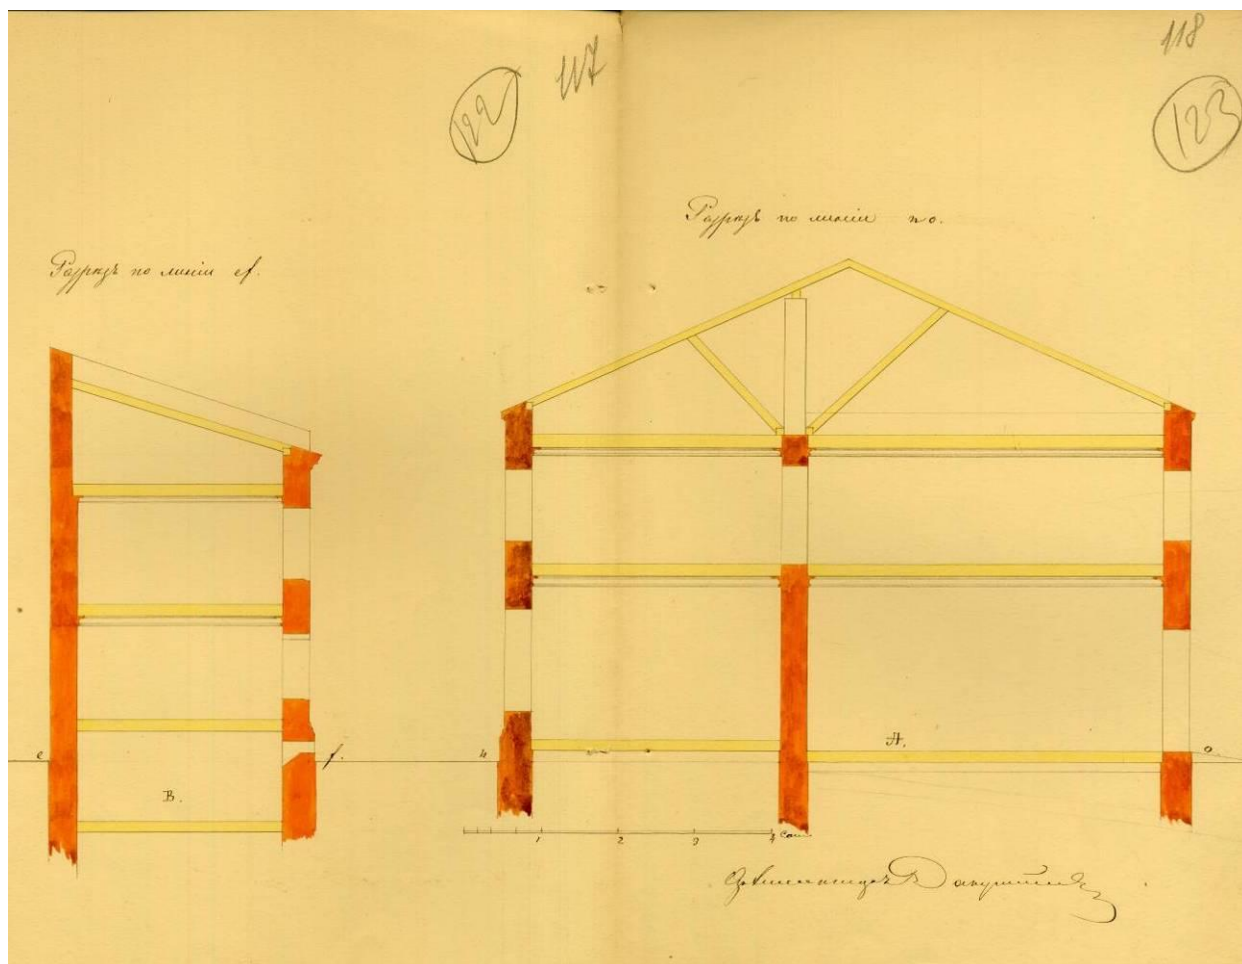 122
117
118
123
Разрѣзъ по линіи ef.
Разрѣзъ по линіи no.
e
f.
B.
n
A.
o.
1 2 3 4 Саж